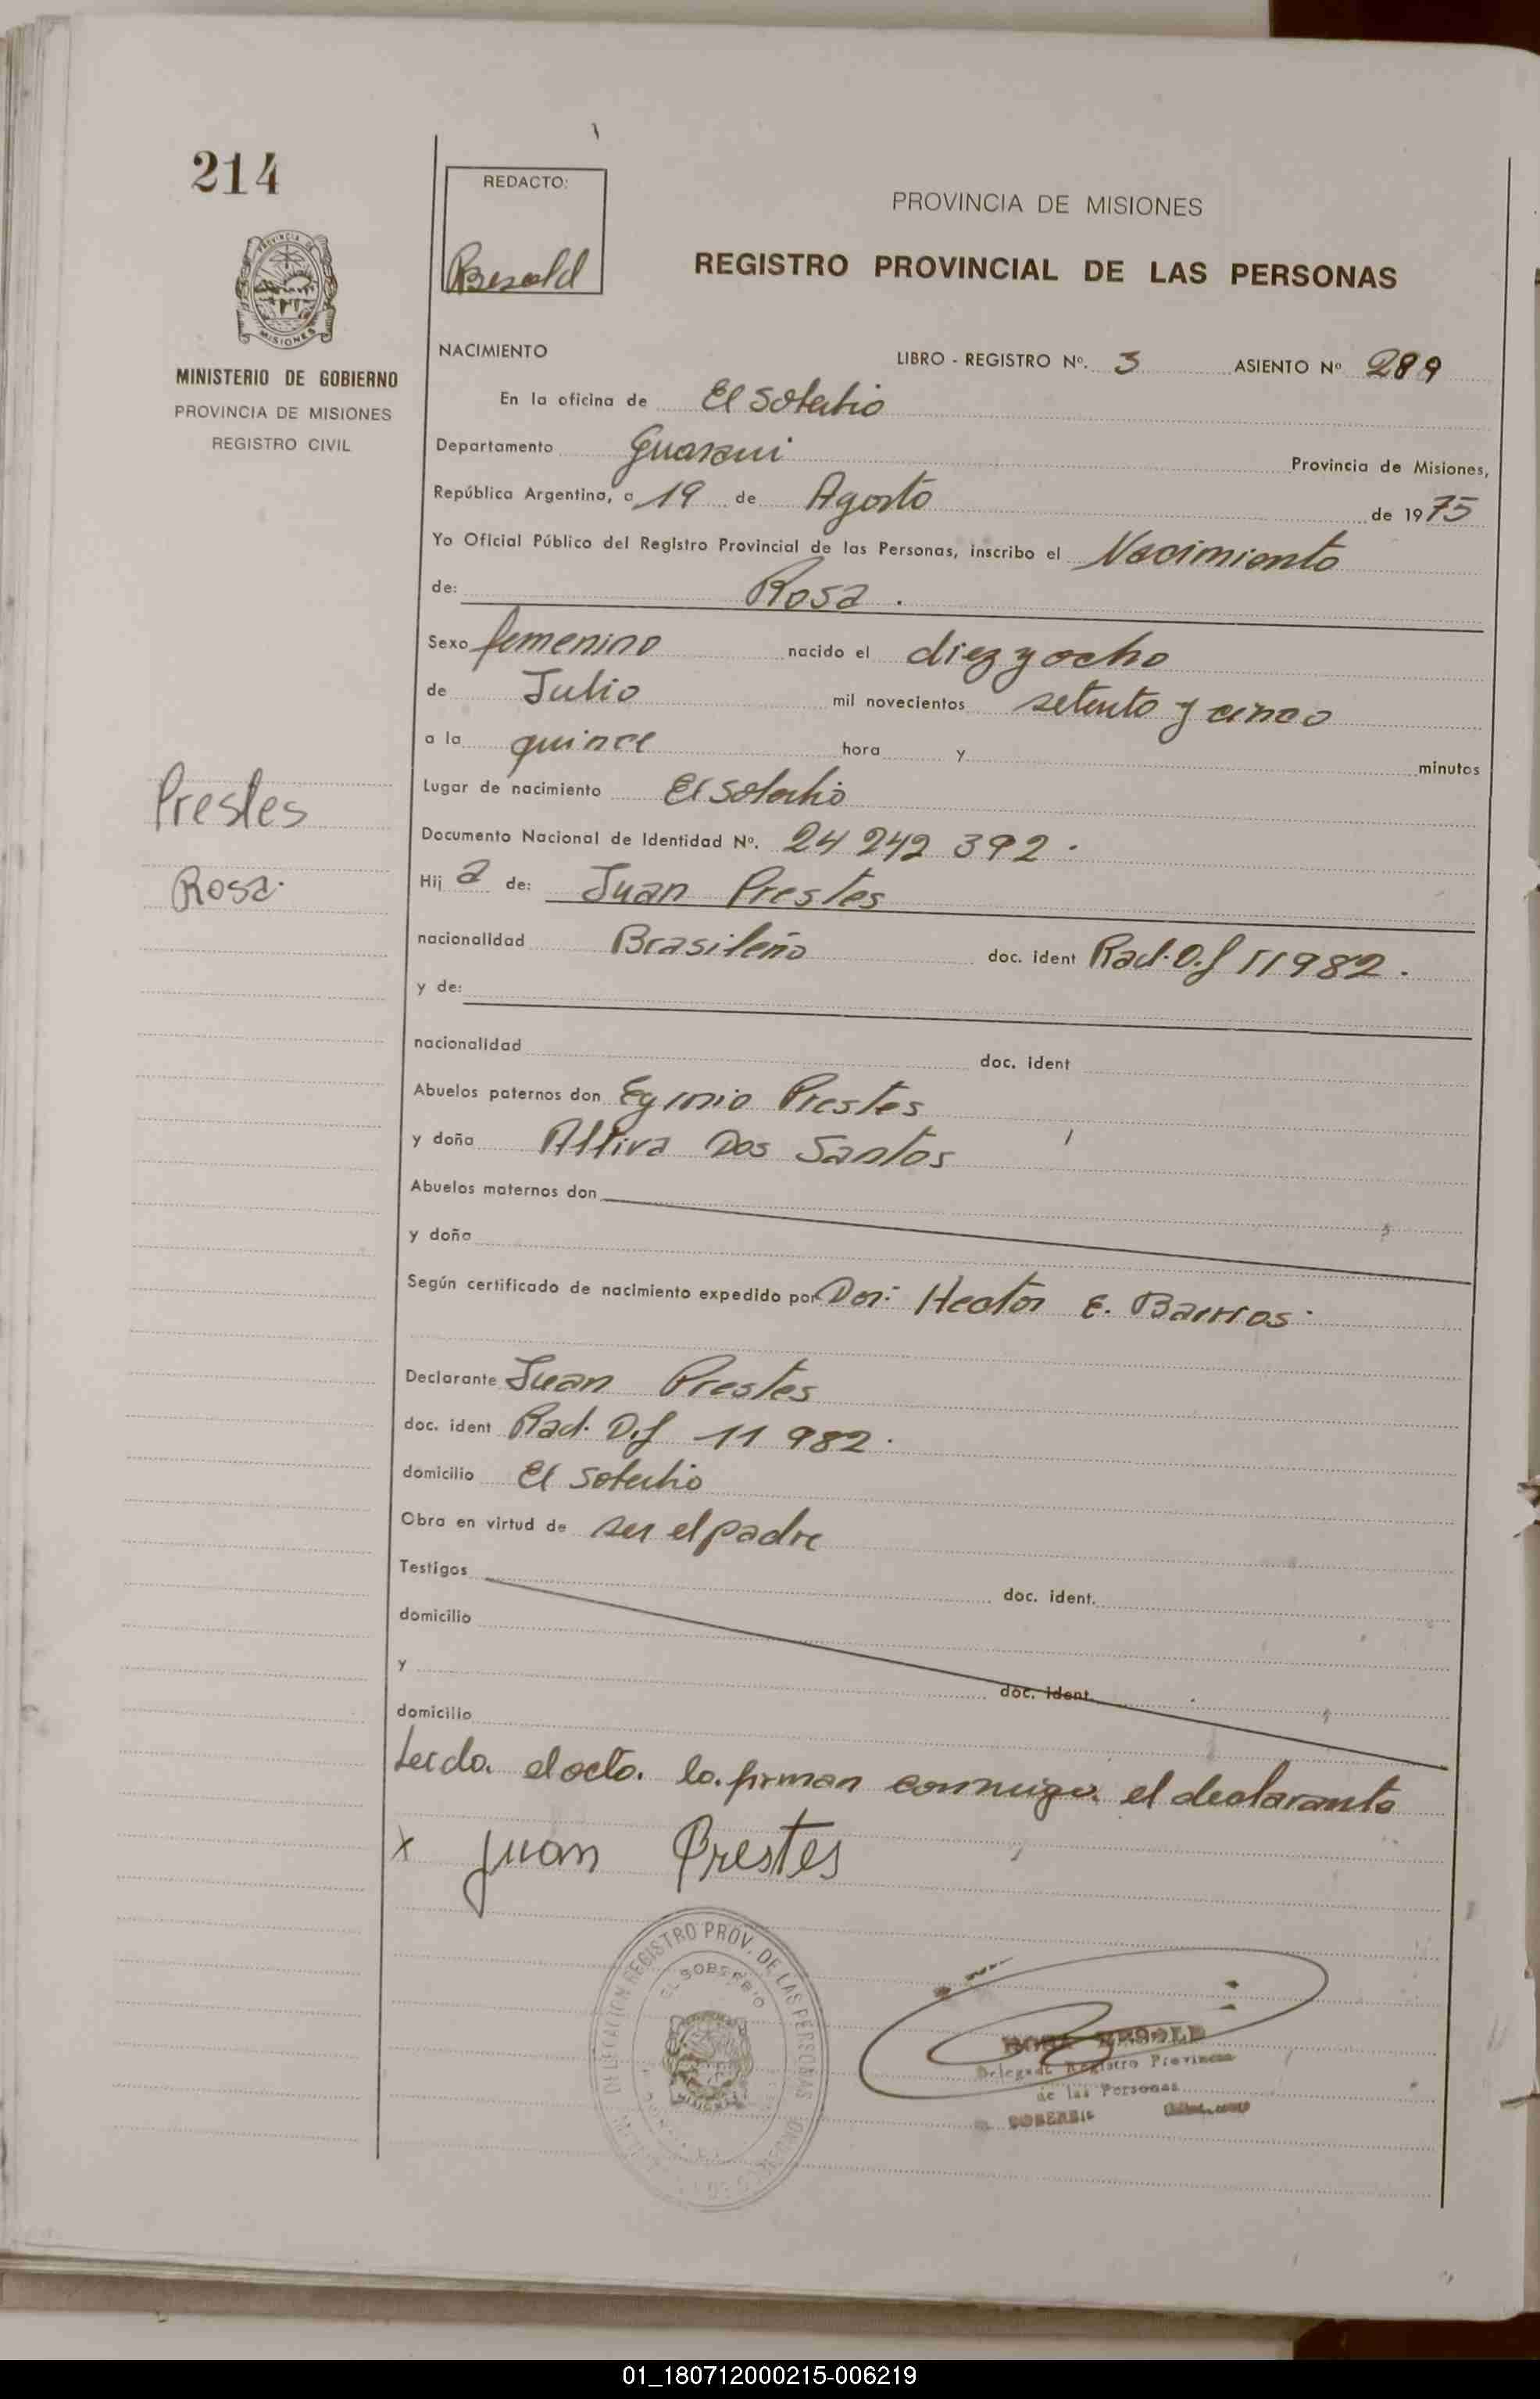 214
REDACTO:
Besold
PROVINCIA DE MISIONES
REGISTRO PROVINCIAL DE LAS PERSONAS
PROVINCIA DE
MISIONES
MINISTERIO DE GOBIERNO
PROVINCIA DE MISIONES
REGISTRO CIVIL
NACIMIENTO LIBRO - REGISTRO Nº. 3 ASIENTO Nº 289
En la oficina de El Soberbio
Departamento Guarani Provincia de Misiones,
República Argentina, a 19 de Agosto de 1975
Yo Oficial Público del Registro Provincial de las Personas, inscribo el Nacimiento
de: Rosa.
Sexo femenino nacido el diez y ocho
de Julio mil novecientos setenta y cinco
a la quince hora y minutos
Lugar de nacimiento El Soberbio
Prestes
Documento Nacional de Identidad Nº. 24 242 392.
Rosa.
Hij a de: Juan Prestes
nacionalidad Brasileño doc. ident Rad. O.f 11982.
y de:
nacionalidad doc. ident
Abuelos paternos don Prestes
y doña Altiva Dos Santos
Abuelos maternos don
y doña
Según certificado de nacimiento expedido por Dor: Hector E. Barrios.
Declarante Juan Prestes
doc. ident Rad. O.f 11 982.
domicilio El Soberbio
Obra en virtud de ser el padre
Testigos doc. ident.
domicilio
y doc. ident.
domicilio
Leida el acta. la firman conmigo. el declarante
x Juan Prestes
DELEGACION REGISTRO PROV. DE LAS PERSONAS
EL SOBERBIO
MISIONES
ROSA BESOLD
Delegada Registro Provincial
de las Personas
SOBERBIO
01_180712000215-006219